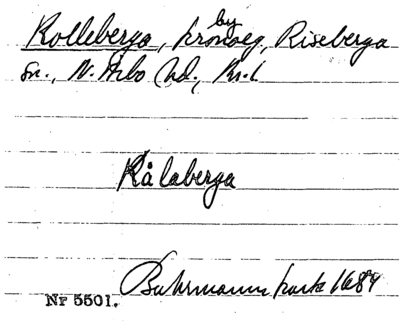 Kolleberga, by kronoeg, Riseberga
sn., N. Åsbo hd., Kr. l.
Kålaberga
Buhrmanns karta 1684
Nr 5501.